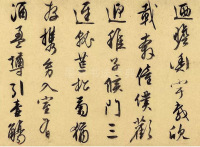 廼瞻衡宇載欣
載奔僮僕歡
迎稚子候門三
逕就荒松菊猶
存攜幼入室有
酒盈罇引壺觴